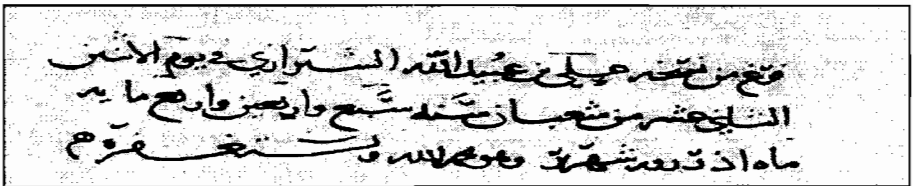 فرغ من نسخه علي بن عبيد الله الشيرازي في يوم الاثنين
الثاني عشر من شعبان سنه سبع واربعين واربع مايه
ماه اذر روز شهرير وهو يحمد الله ويستغفره